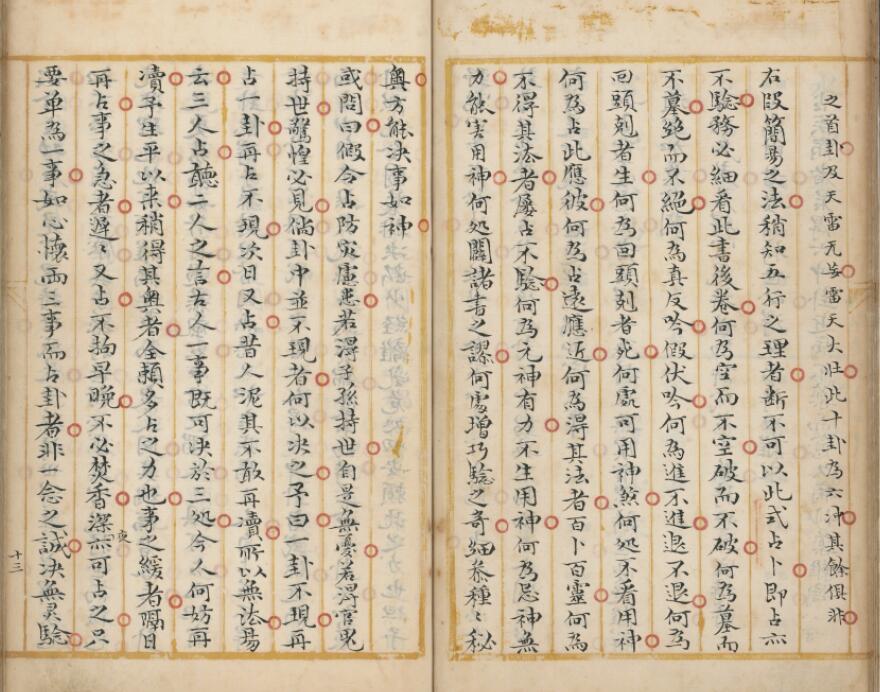 之首卦及天雷无妄雷天大壮此十卦為六冲其餘俱非
右段簡易之法稍知五行之理者断不可以此式占卜即占亦
不驗務必細看此書後卷何為空而不空破而不破何為墓而
不墓絕而不絕何為真反吟假伏吟何為進不進退不退何為
回頭剋者生何為回頭剋者死何處可用神煞何処不看用神
何為占此應彼何為占遠應近何為得其法者百卜百靈何為
不得其法者屡占不驗何為元神有力不生用神何為忌神無
力能害用神何処闢諸書之謬何處增巧驗之奇細叅種〻秘
奧方能决事如神
或問曰假令占防灾慮患若淂子孫持世自是無憂若淂官鬼
持世驚惶必見倘卦中並不現者何以决之予曰一卦不現再
占一卦再占不現次日又占昔人泥其不敢再瀆所以無法易
云三人占聽二人之言古人一事既可决於三処今人何妨再
瀆予生平以来稍得其奥者全賴多占之力也事之緩者隔日
再占事之急者遲〻又占不拘早晚不必焚香深夜亦可占之只
要单為一事如心懷兩三事而占卦者非一念之誠决無灵驗
十三